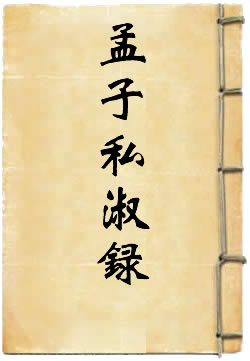 孟子私淑録